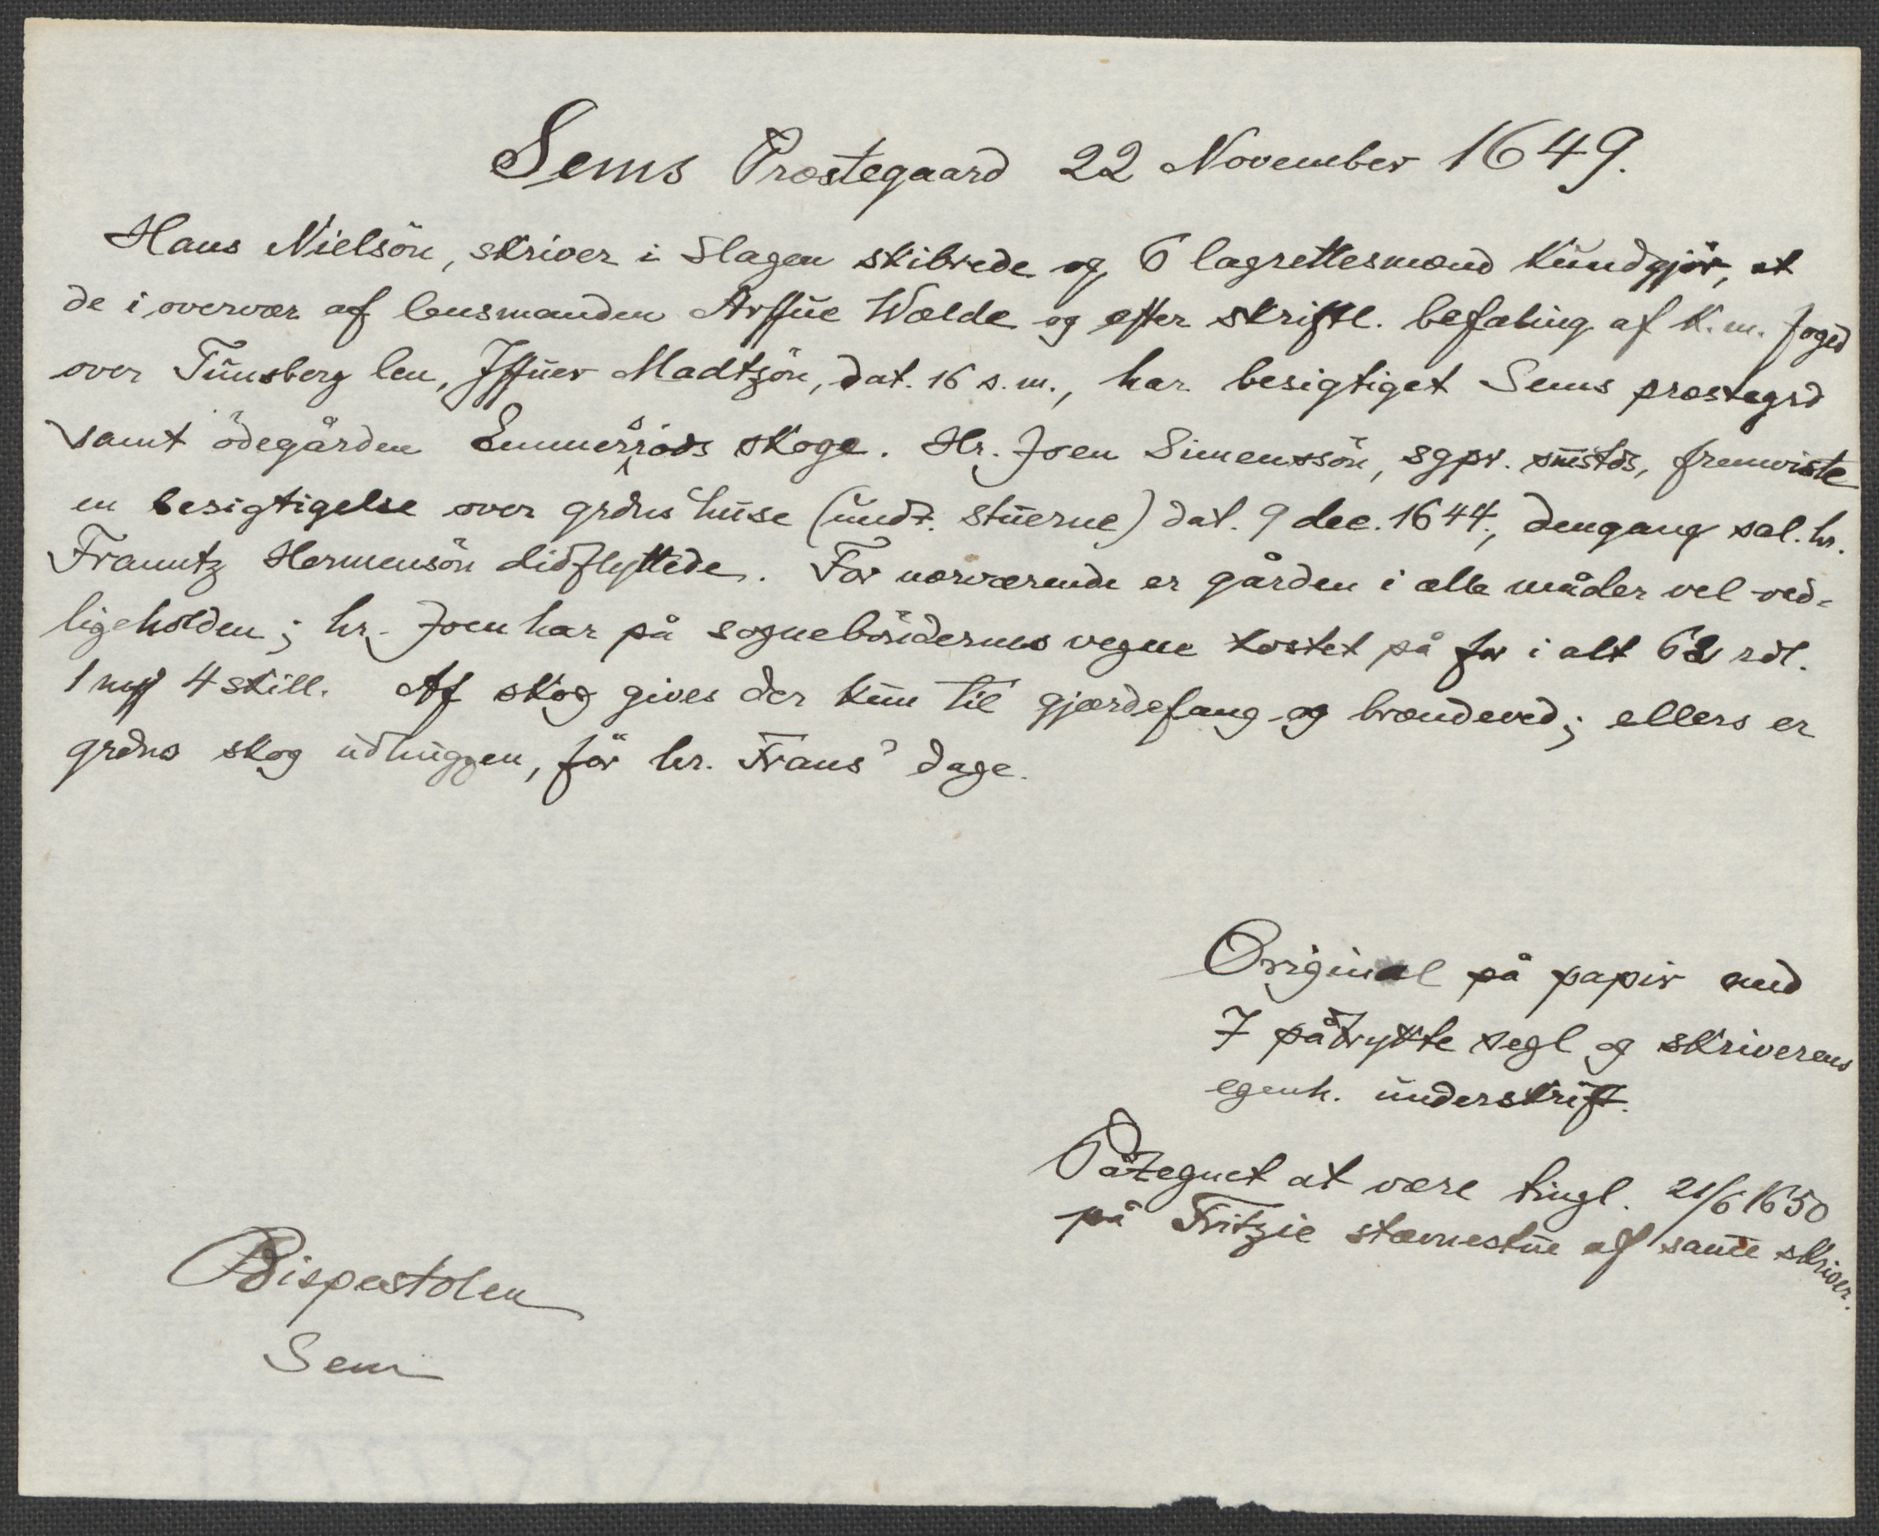 Sems Præstegaard 22 November 1649.
Hans Nielsön, skriver i Slagen skibrede og 6 lagrettesmænd kundgjør, at
de i overvær af lensmanden Arffue Wælde og efter skriftl. befaling af K. m. foged
over Tunsberg len, Iffuer Madtzön, dat. 16 s. m., har besigtiget Sems præstegrd
samt ödegården Emmersröds skoge. Hr. Joen Simenssön, sgpr. smstds, fremviste
en besigtigelse over grdns huse (undt. stuerne) dat. 9 dec. 1644, dengang sal. hr.
Franntz Hermensön didflyttede. For nærværende er gården i alle måder vel ved-
ligeholden; hr. Joen har på sognebönderness vegne kostet på for i alt 62 rdl.
1 mk 4 skill. Af skog gives der kun til gjærdefang og brændeved; ellers er
grdns skog udhuggen, för hr. Frans' dage.
Original på papir med
7 påtrykte segl og skriverens
egenh. underskrift.
Påtegnet at være tingl. 21/6 1650
på Fritzie stævnestue af samme skriver.
Bispestolen
Sem